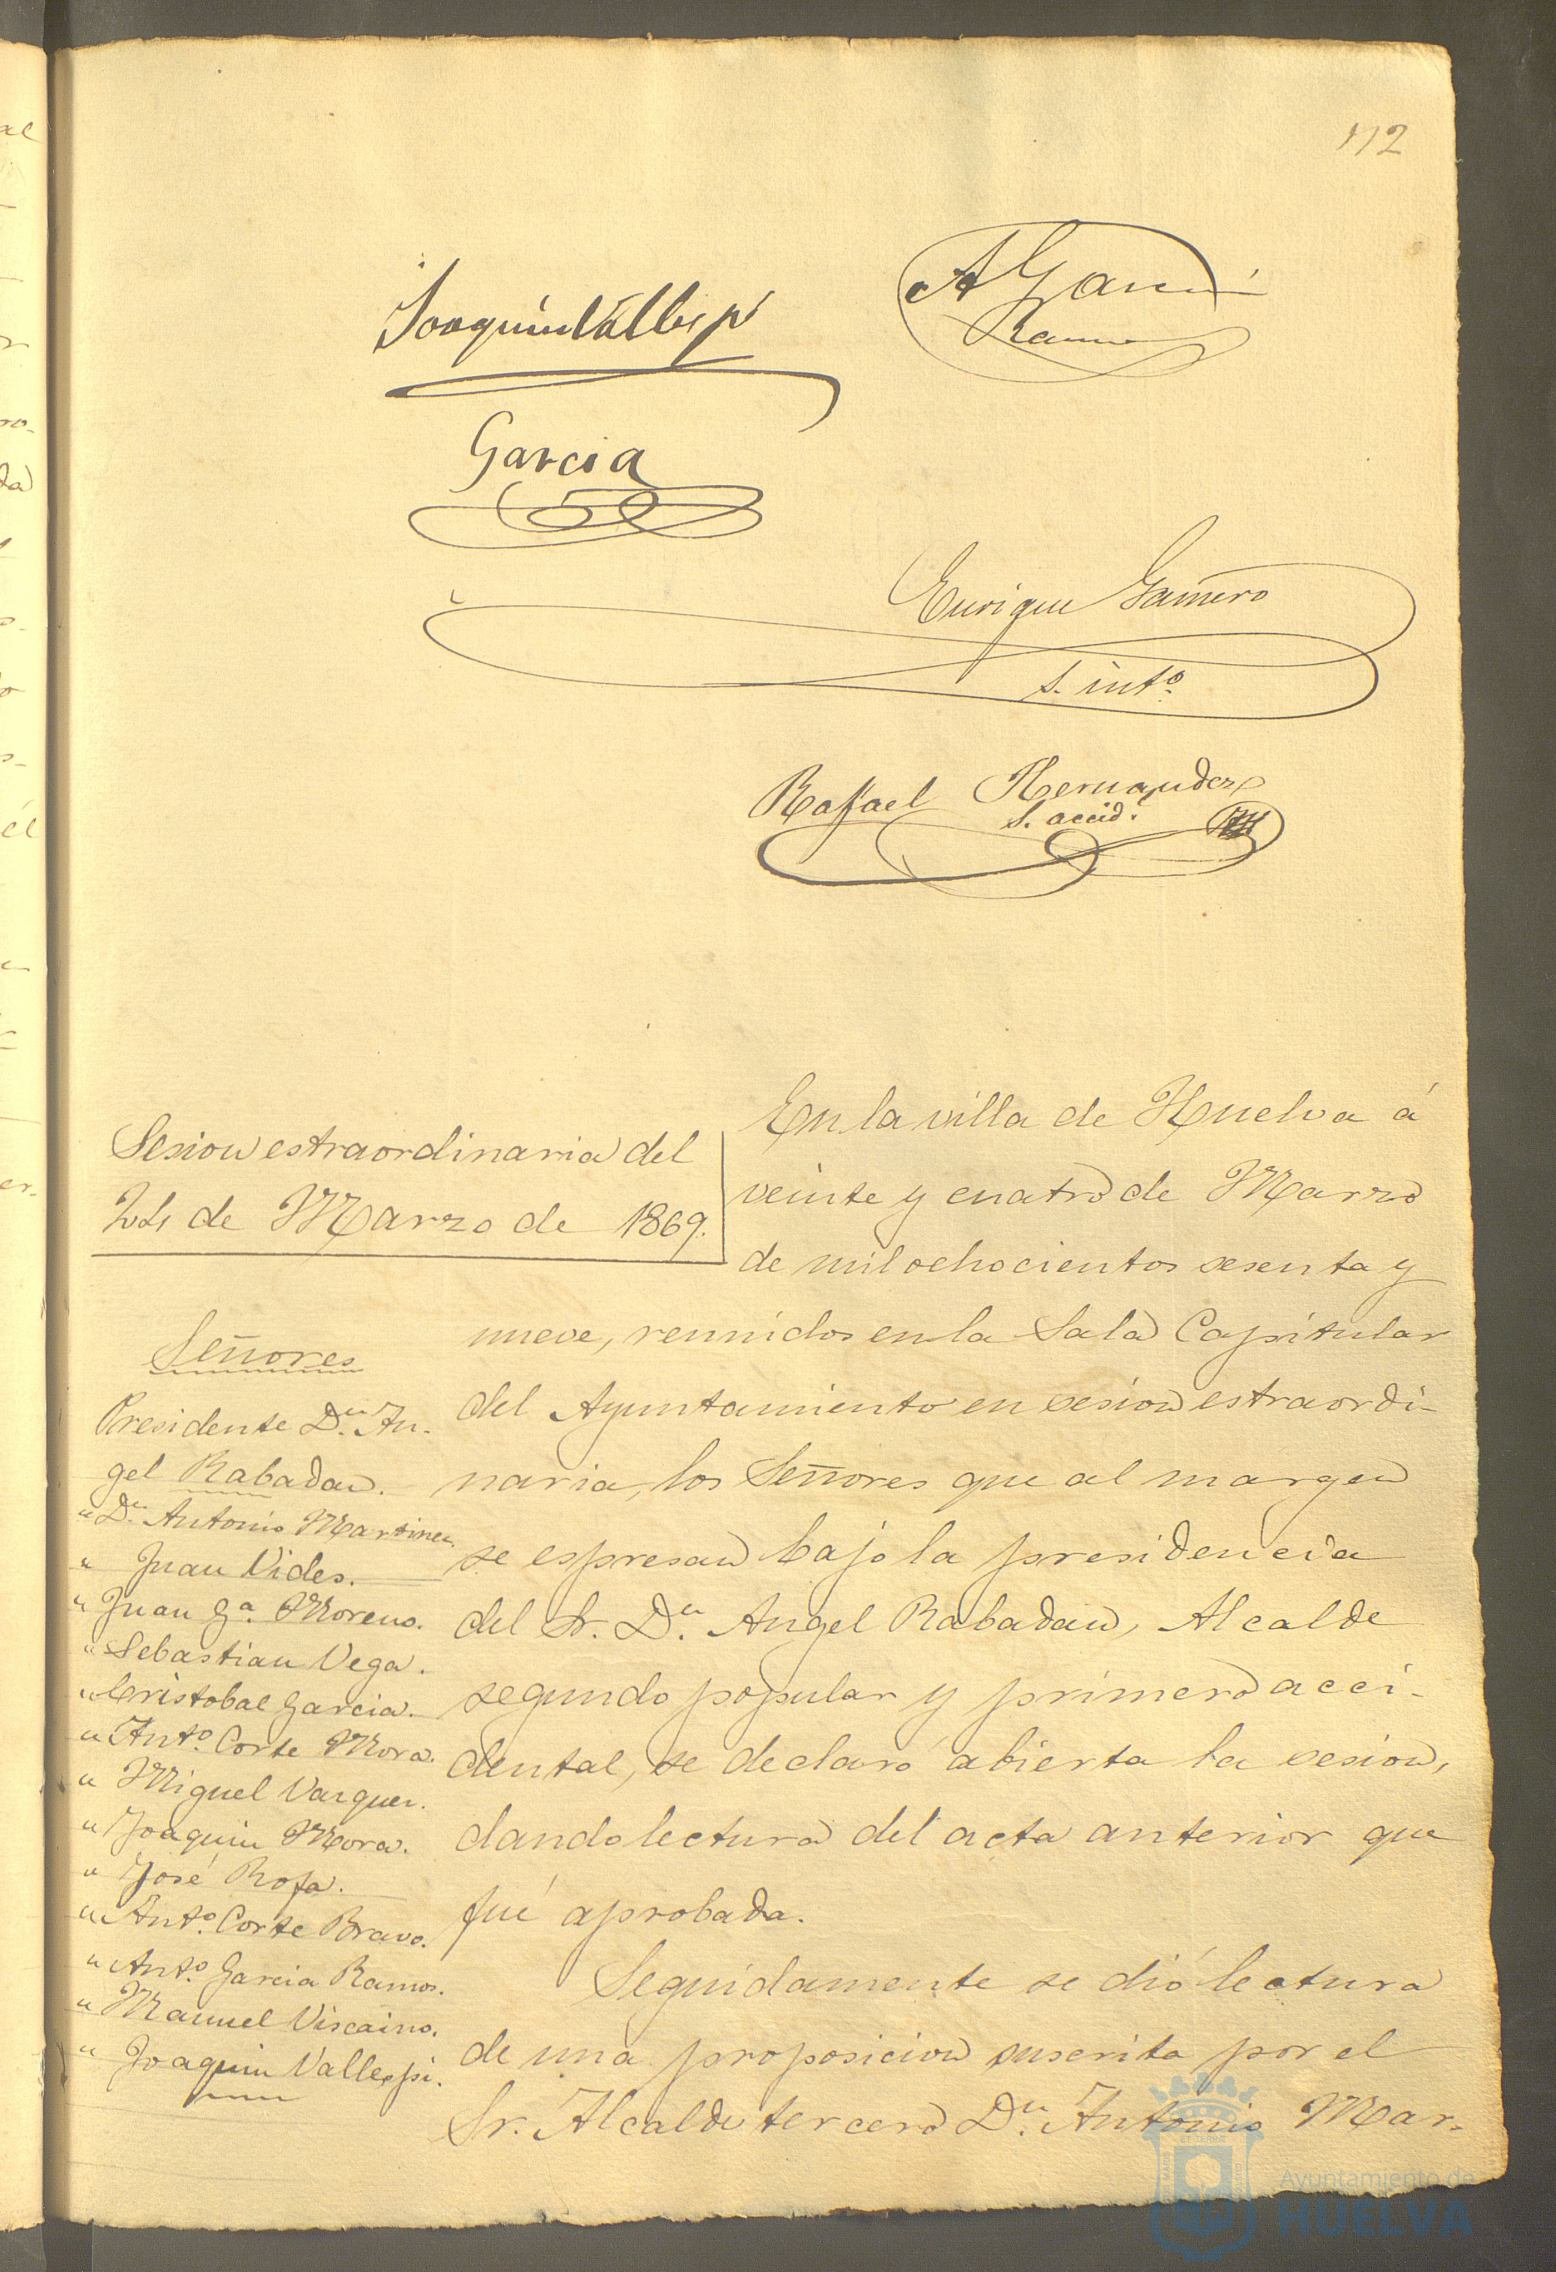 112
Joaquin Vallespi
A Garcia
Ramos
Garcia
Enrique Gamero
S. int.º
Rafael Hernandez
S. accid.
Sesion estraordinaria del
24 de Marzo de 1869.
Señores
Presidente D.n An-
gel Rabadan.
" D.n Antonio Martinez.
" Juan Vides.
" Juan G.a Moreno.
" Sebastian Vega.
" Cristobal Garcia.
" Ant.o Corte Mora.
" Miguel Vazquez.
" Joaquin Mora.
" José Rofa.
" Ant.o Corte Bravo.
" Ant.o Garcia Ramos.
" Manuel Viscaino.
" Joaquin Vallespi.
En la villa de Huelva á
veinte y cuatro de Marzo
de mil ochocientos sesenta y
nueve, reunidos en la Sala Capitular
del Ayuntamiento en sesion estraordi-
naria, los Señores que al margen
se espresan bajo la presidencia
del Sr. D.n Angel Rabadan, Alcalde
segundo popular y primero acci-
dental, se declaró abierta la sesion,
dando lectura del acta anterior que
fué aprobada.
Seguidamente se dió lectura
de una proposicion suscrita por el
Sr. Alcalde tercero D.n Antonio Mar-
Ayuntamiento de
HUELVA